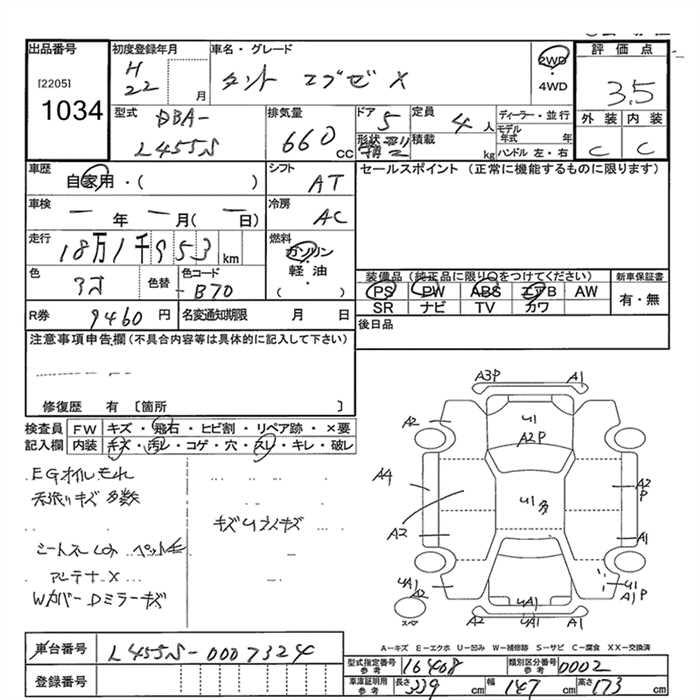 出品番号
[2205]
1034
初度登録年月
H
22 月
車名・グレード
タント エグゼ X
2WD
・
4WD
評価点
3.5
外装 内装
C C
型式
DBA-
L455S
排気量
660 cc
ドア 5
定員 4 人
形状
積載 kg
ディーラー・並行
モデル年式 年
ハンドル 左・右
車歴
自家用・( )
シフト
AT
セールスポイント (正常に機能するものに限ります)
車検
― 年 ― 月( ― 日)
冷房
AC
走行
18万1千953 km
燃料
ガソリン
・
軽油
・
( )
色
色替
色コード
B70
装備品 (純正品に限り○をつけてください)
PS PW ABS エアB AW
SR ナビ TV カワ
新車保証書
有・無
R券 9460 円
名変通知期限 月 日
後日品
注意事項申告欄(不具合内容等は具体的に記入して下さい)
修復歴 有 [箇所 ]
検査員記入欄
FW キズ・飛石・ヒビ割・リペア跡・×要
内装 キズ・汚レ・コゲ・穴・スレ・キレ・破レ
EGオイルモれ
天張りキズ多数
キズUライキズ
シートスレ
アンテナX
WカバーDミラーキズ
A3P A1
A2 U1 A2P
A4 U1多 A2P
A2 A1
UA1 A2 U1 A1P
UA1
A2 A1
A−キズ E−エクボ U−凹み W−補修跡 S−サビ C−腐食 XX−交換済
車台番号 L455S-0007324
登録番号
型式指定番号 参考 16408
類別区分番号 参考 0002
車庫証明用 参考 長さ 339 cm 幅 147 cm 高さ 173 cm